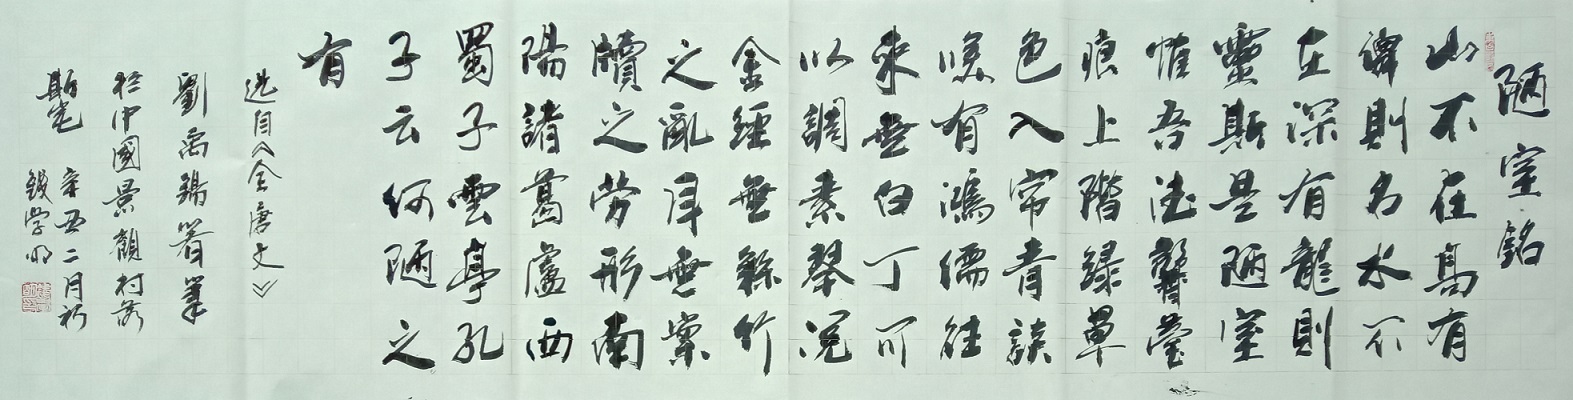 陋室銘
山不在高有
僊則名水不
在深有龍則
靈斯是陋室
惟吾德馨苔
痕上階綠草
色入帘青談
咲有鴻儒往
來無白丁可
以調素琴閱
金經無絲竹
之亂耳無案
牘之勞形南
陽諸葛廬西
蜀子雲亭孔
子云何陋之
有
选自《全唐文》
劉禹錫著筆
於中國景顏村
辛丑二月初
錢学明